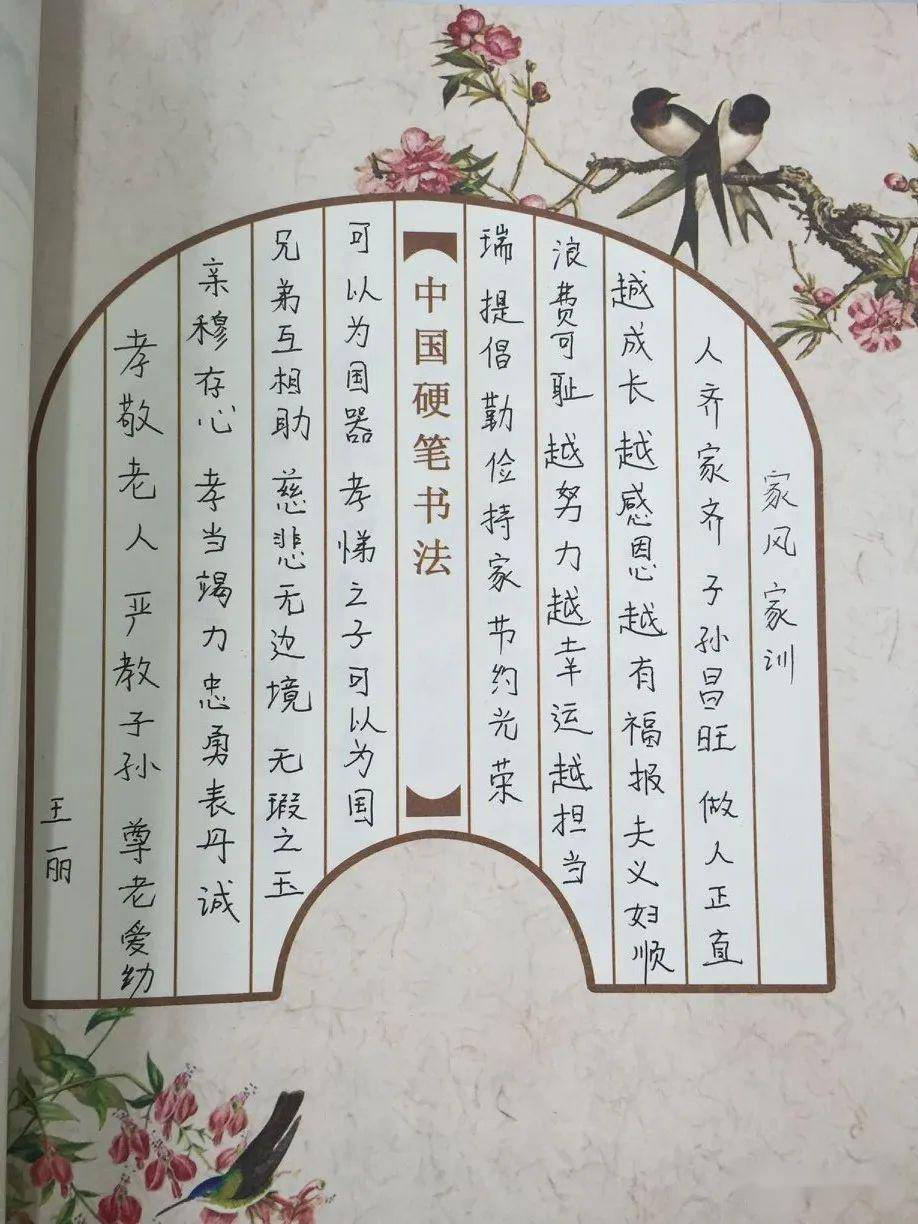 家风家训
人齐家齐 子孙昌旺 做人正直
越成长 越感恩 越有福报 夫义妇顺
浪费可耻 越努力越幸运越担当
瑞提倡勤俭持家节约光荣
中国硬笔书法
可以为国器 孝悌之子可以为国
兄弟互相助 慈悲无边境 无瑕之玉
亲穆存心 孝当竭力忠勇表丹诚
孝敬老人 严教子孙 尊老爱幼
王丽